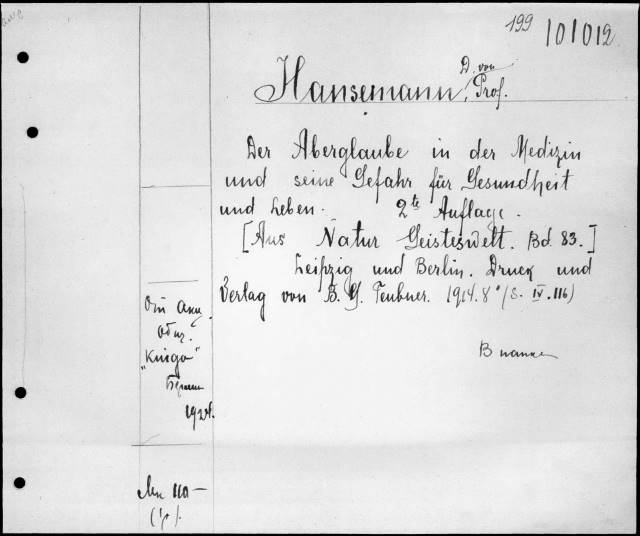 199 101012
D. von
Hansemann, Prof.
Der Aberglaube in der Medizin
und seine Gefahr für Gesundheit
und Leben. 2te Auflage.
[Aus Natur Geisteswelt. Bd. 83.]
Leipzig und Berlin. Druck und
Verlag von B. G. Teubner. 1914. 8° (S. IV. 116)
"Kniga"
1924.
110 —